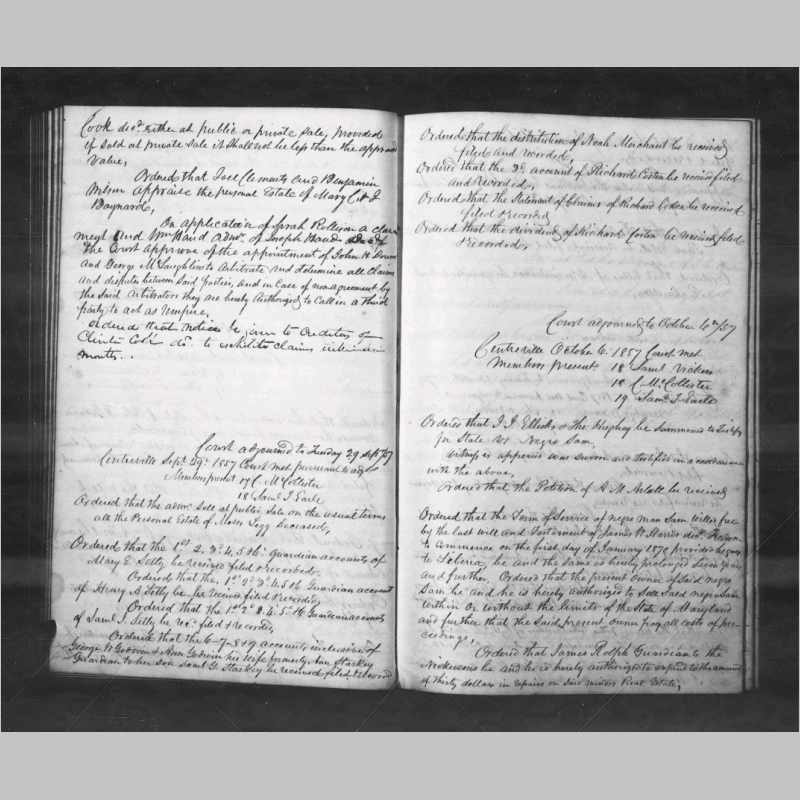 Cook decd. either at public or private sale, provided
if sold at private sale it shall not be less than the appraised
value,
Ordered that Joel Clements and Benjamin
Wilson appraise the personal Estate of Mary C. A. J
Baynard,
On application of Sarah a claim
and Wm Admr. of Joseph
The Court approve of the appointment of John H
and George McLaughlin to Arbitrate and determine all claims
and disputes between said parties, and in case of nonagreement by
the said Arbitrators they are hereby Authorized to Call in a third
party to act as Umpire,
Ordered that notice be given to Creditors of
decd. to exhibit claims within
months.
Court adjourned to Tuesday 29 Sept/57
Centreville Sept. 29th. 1857 Court met pursuant to adjt
Members present 17 C. McCollister
18 Saml T Earle
Ordered that the admr. sell at public sale on the usual terms
all the Personal Estate of Moses Legg deceased,
Ordered that the 1st. 2. 3d. 4. 5th 6. Guardian accounts of
Mary E. be received filed & recorded
Ordered that the 1st. 2d 3d 4. 5th 6 Guardian account
of Henry A. be received filed & recorded,
Ordered that the 1st 2d 3. 4. 5. th 6 Guardian accounts
of Saml T. be recd. filed & recorded,
Ordered that the 6-7-8 & 9 accounts inclusive of
George W Godwin & Ann Godwin his wife formerly Ann Starkey
Guardian to her son Saml G. Starkey be received filed & Record
Ordered that the distribution of Noah Merchant be received
filed and recorded,
Ordered that the 3d. account of Richard Coston be received filed
and recorded.
Ordered that the Statement of Claims of Richard Coston be received
filed & recorded
Ordered that the dividend of Richard Coston be received filed
& Recorded.
Court adjourned to October 6th/57
Centreville October 6. 1857 Court met
Members present 18 Saml Vickers
18 C. McCollister
19 Saml. T. Earle
Ordered that J. J. & The be Summoned to Testify
for State vs. Negro Sam,
Witness appeared was sworn and testified in accordance
with the above,
Ordered that the Petition of A. M. be received
Ordered that the Term of Service of negro man Sam willed free
by the last will and Testament of James W Harris decd. Freedom
to Commence on the first day of January 1870 provided he goes
to Liberia, be and the same is hereby prolonged Seven Years
and further, Ordered that the present owner of Said negro
Sam be and he is hereby authorized to Sell Said negro Sam
within or without the limits of the State of Maryland
and further that the Said present owner pay all costs of pro-
ceedings,
Ordered that James Rolph Guardian to the
Nickersons be and he is hereby authorized to expend to the amount
of thirty dollars in repairs on Said minors Real Estate,